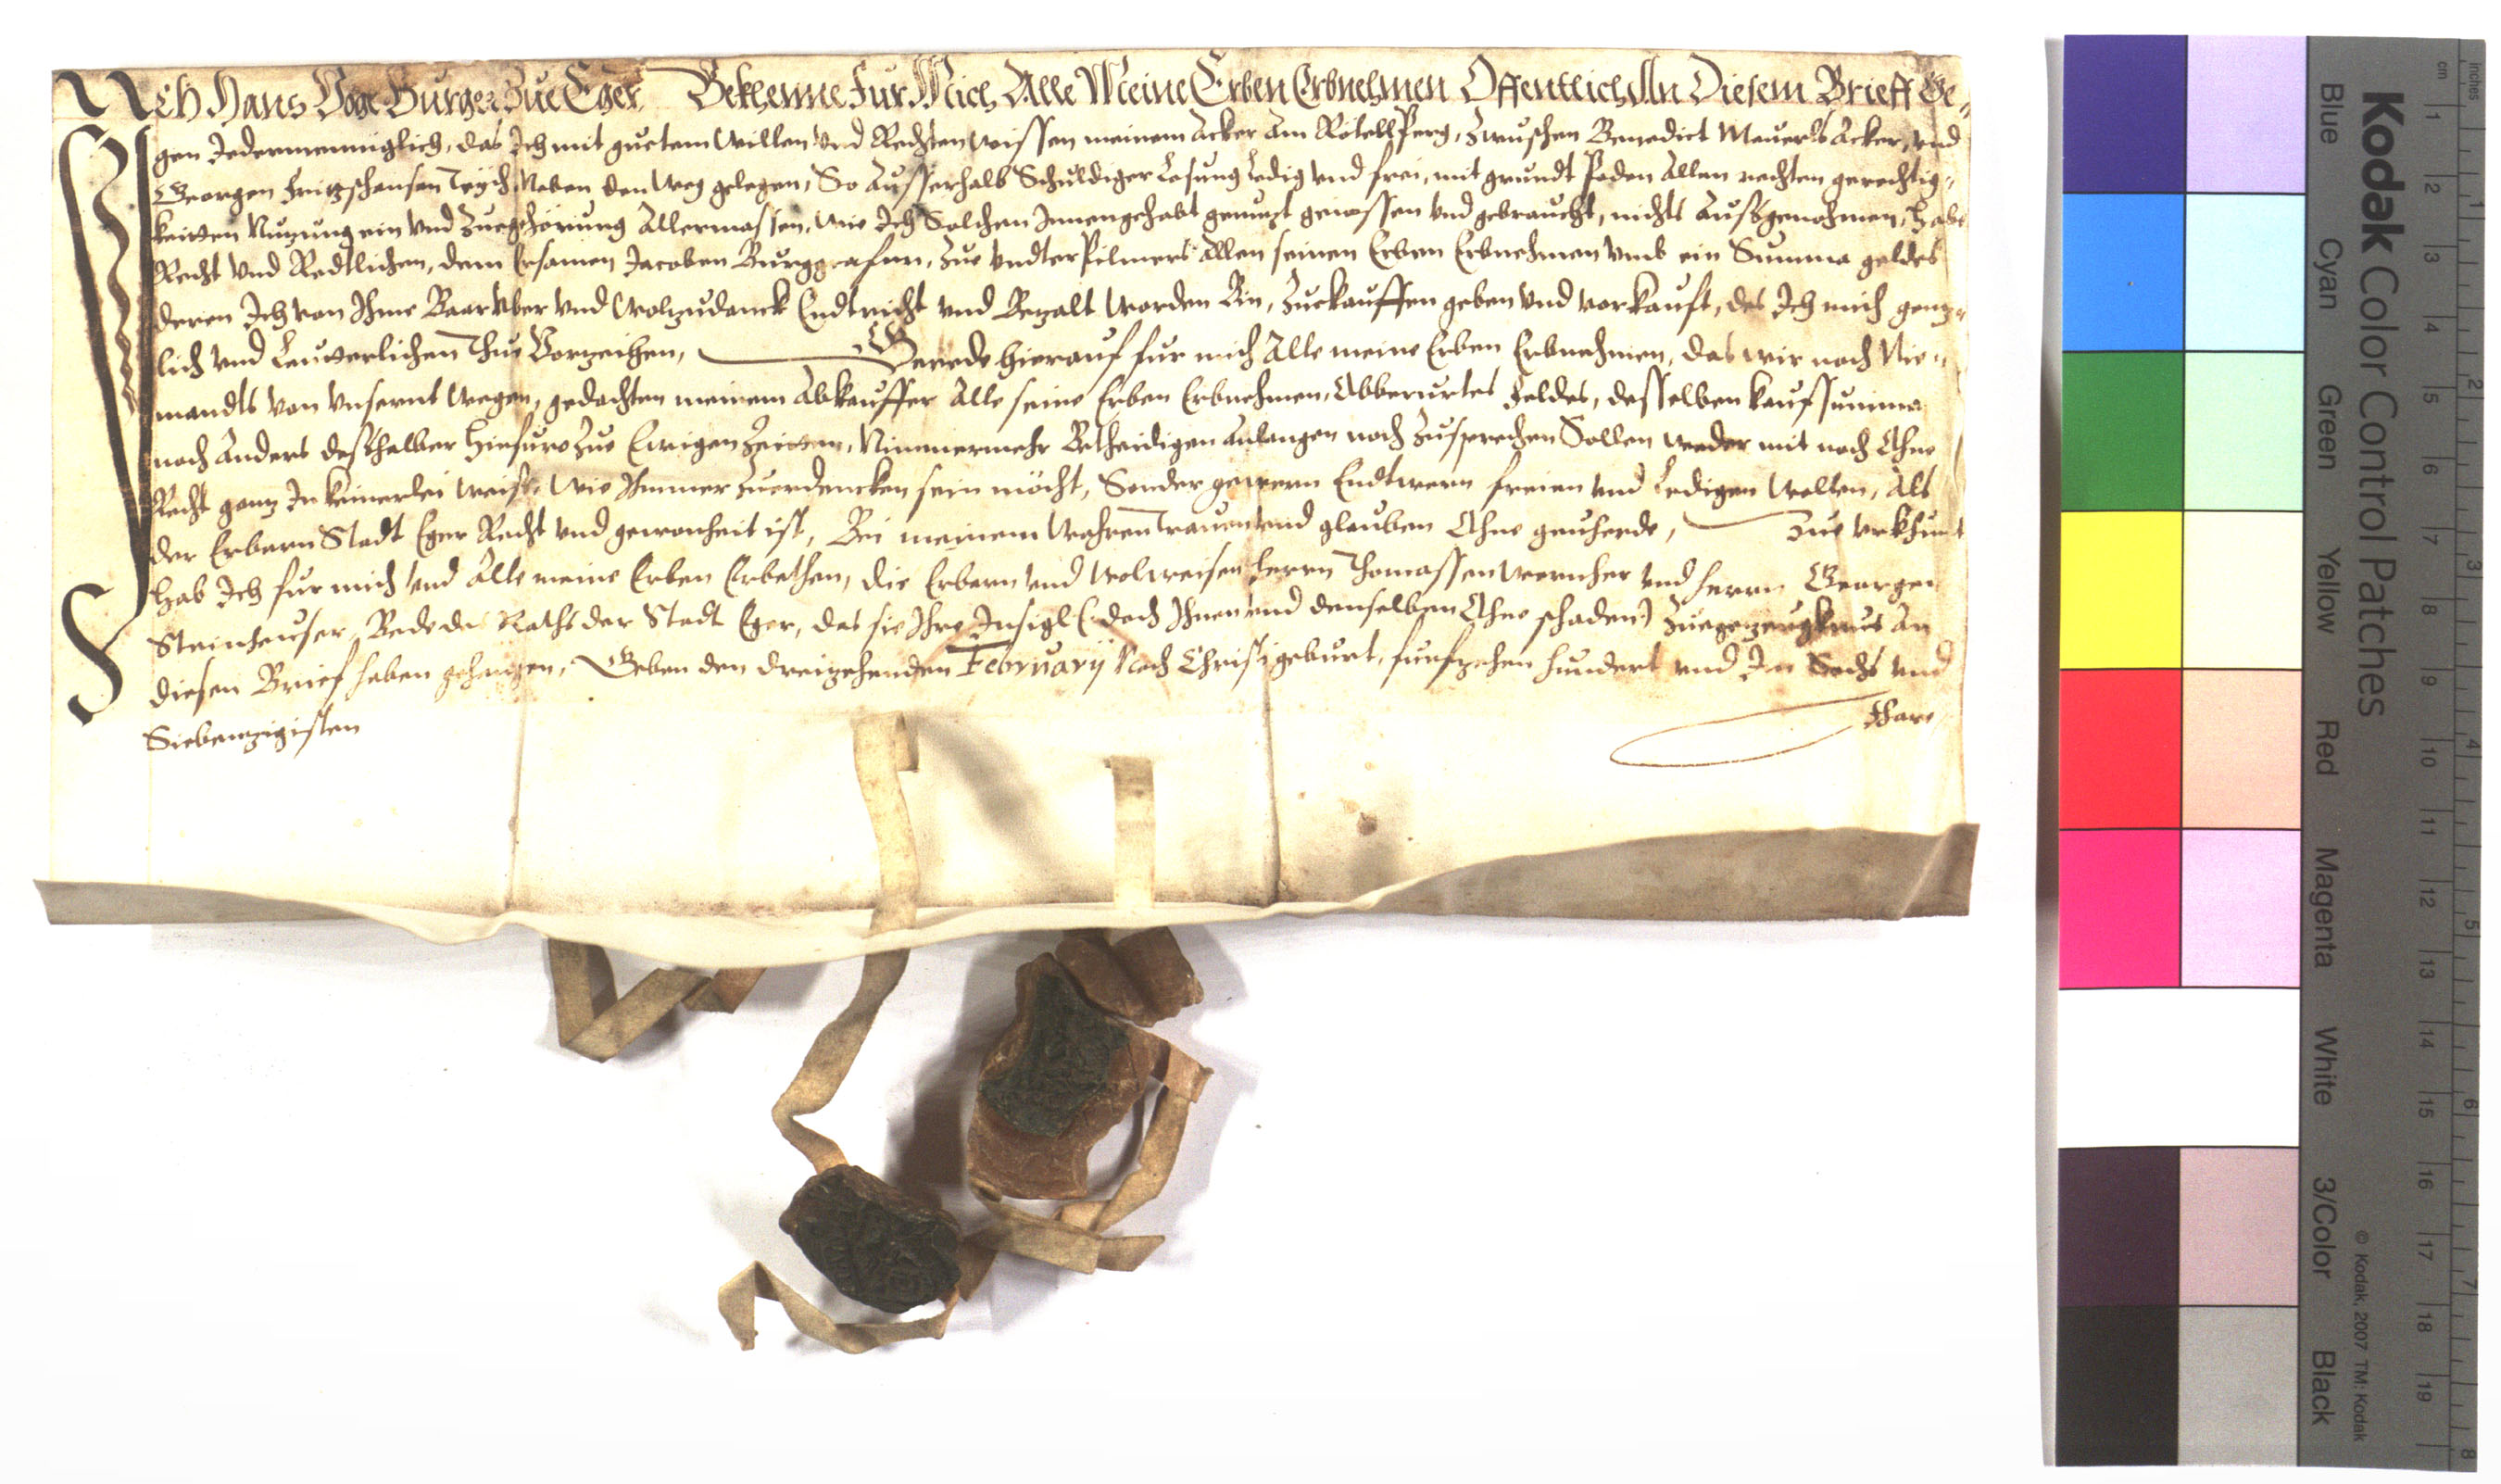 Ich Hans Vogt Burger Zue Eger, Bekhenne Fur Mich Alle Meine Erben Erbnehmen Offentlich An Diesem Brieff Ge-
gen Jedermenniglich, das Ich mit guetem Willen Und Rechten Wissen meinem Acker Am RötellPerg, Zwuschen Benedict Meuerls Acker, Und
Georgen Fritzschansen Teych Neben den Weg gelegen, So Ausserhalb Schuldiger Losung Ledig Und frei, mit grundt Poden Allen rechten gerechtig-
keitten Nuzung ein Und Zuegehörung Allermassen, Wie Ich Solchen Innengehabt genuzt genossen Und gebraucht, nichts Aussgenohmen, Habe
Recht Und Redtlichen, dem Ersamen Jacoben Burggrafen, Zue UndterPilmers Allen seinen Erben Erbnehmen Umb ein Summa geldes
deren Ich von Ihme Baar Uber Und Wolzudanck Endtricht Und Bezalt Worden Bin, Zuekauffen geben Und vorkauft, des Ich mich genz-
lich Und Leutterlichen Thue Vorzeihen, Gerede hierauf fur mich Alle meine Erben Erbnehmen, das wir noch Nie-
mandts von Unsernt Wegen, gedachten meinem Abkauffer Alle seine Erben Erbnehmen, Obberurtes Feldes, desselben kaufsumma
noch Anders desshalber Hinfuro Zue Ewigen Zeitten, Nimmermehr Betheidigen Anlangen noch Zusprechen Sollen Weder mit noch Ohne
Recht ganz In keinerlei Weise, Wie Immer Zuerdencken sein möcht, Sonder gewern Endtwern freien Und Ledigen Wollen, Als
der Erbarn Stadt Eger Recht Und gewonheit ist, Bei meinem Wahren Trauen Und glauben Ohne geuherde, Zue Urkhunt
Hab Ich fur mich Und Alle meine Erben Erbethen, die Erbarn Und Wolweisen Herrn Thomassen Wernher Und Herrn Georgen
Steinheuser, Bede des Raths der Stadt Eger, das sie Ihre Insigl (doch Ihnen Und denselben Ohne schaden) Zuegezeugknus An
diesen Brief haben gehangen, Geben den dreizehenden February Nach Christi geburt, funfzehen hundert Und Im Sechs Und
Siebenzigisten Jhare
Kodak Color Control Patches
Blue Cyan Green Yellow Red Magenta White 3/Color Black
© Kodak, 2007 TM: Kodak
cm 1 2 3 4 5 6 7 8 9 10 11 12 13 14 15 16 17 18 19
inches 1 2 3 4 5 6 7 8